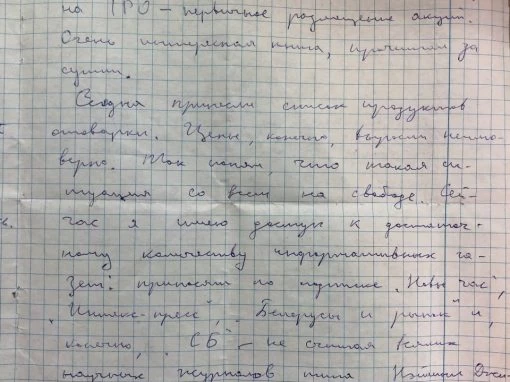 на IPO – первичное размещение акций.
Очень интересная книга, прочитал за
сутки.
Сегодня принесли список продуктов
отоварки. Цены, конечно, выросли неимо-
верно. Так понял, что такая си-
туация со всем на свободе. Сей-
час я имею доступ к достаточ-
ному количеству информативных га-
зет: приносят по подписке „Новы час",
„Интекс-пресс", „Белорусы и рынок" и,
конечно, „СБ" – не считая всяких
научных журналов типа